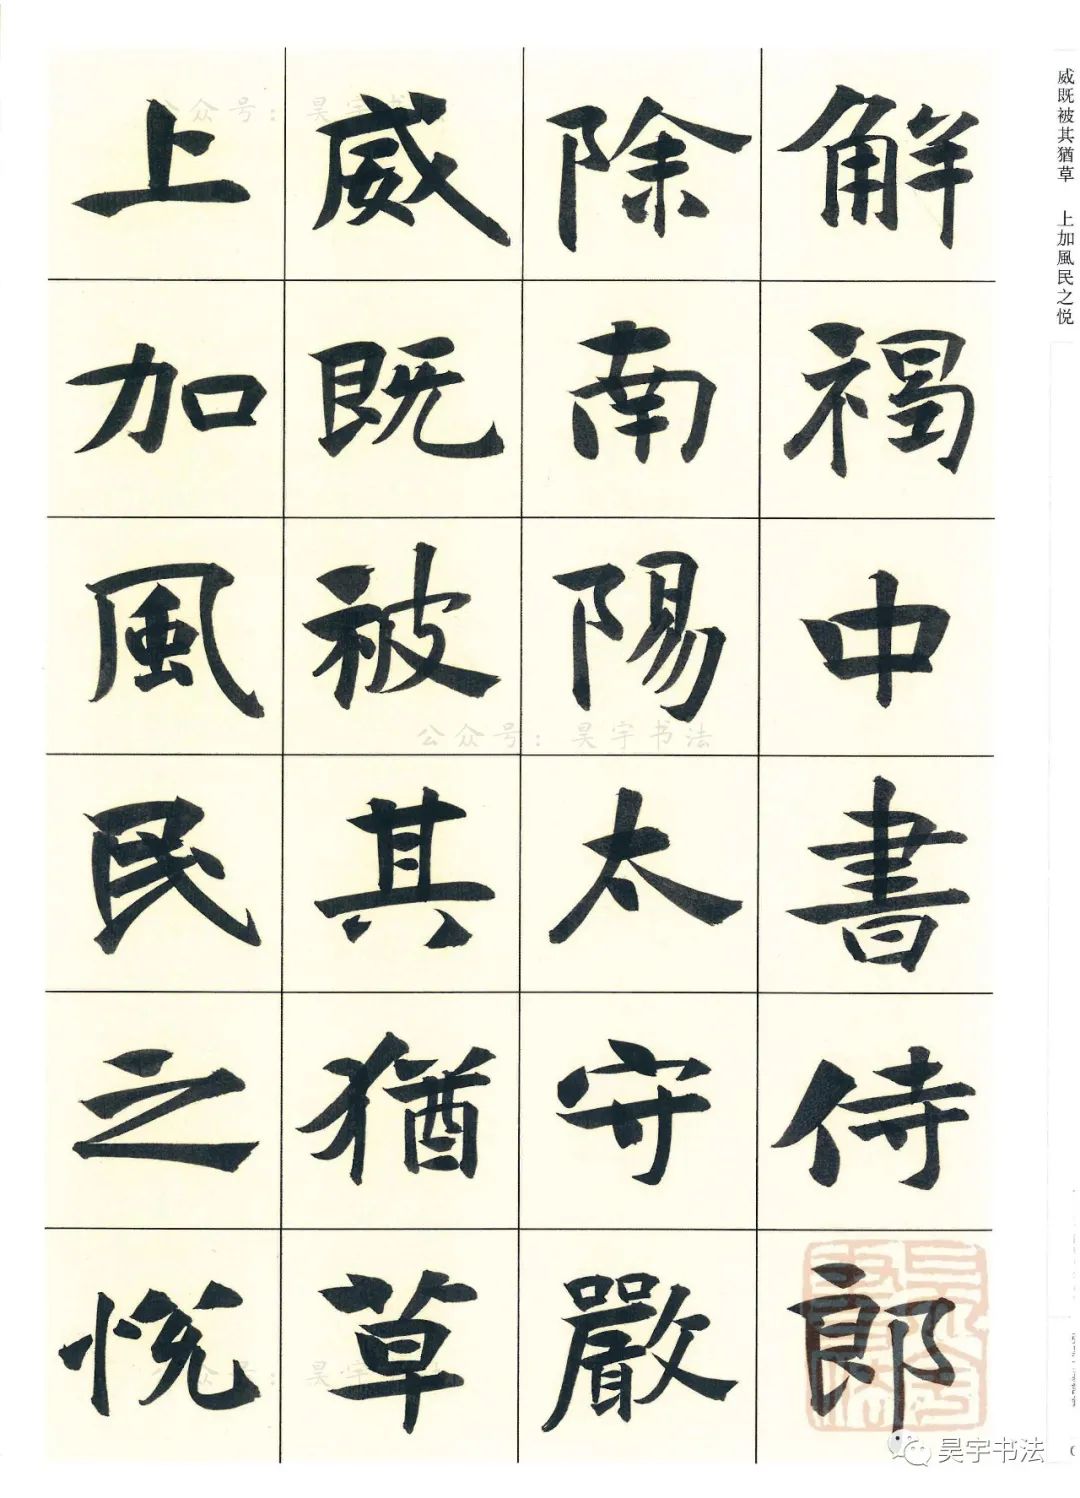 解褐中書侍郎
除南陽太守嚴
威既被其猶草
上加風民之悅
威既被其猶草 上加風民之悦
公众号：昊宇书法
公众号：昊宇书法
公众号：昊宇书法
昊宇书法